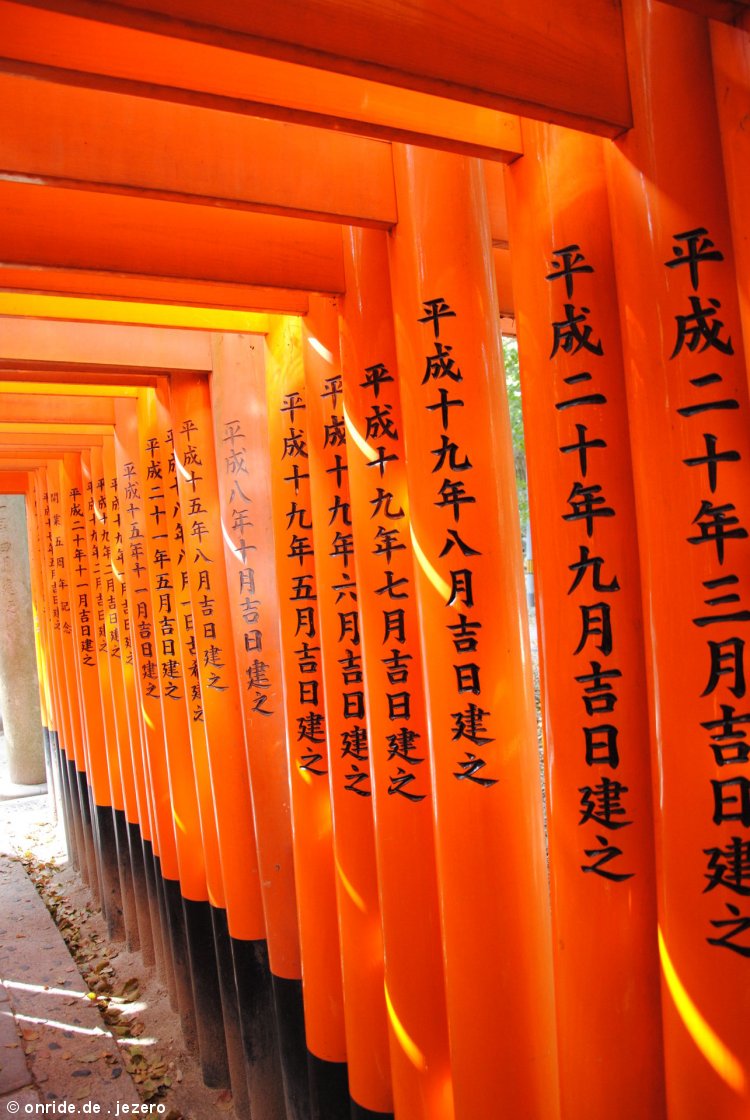 平成二十年三月吉日建之
平成二十年九月吉日建之
平成十九年八月吉日建之
平成十九年七月吉日建之
平成十九年六月吉日建之
平成十九年五月吉日建之
平成八年十月吉日建之
平成十五年八月吉日建之
平成二十一年五月吉日建之
平成十五年十一月吉日建之
平成二十年十一月吉日建之
開業五周年記念
© onride.de . jezero